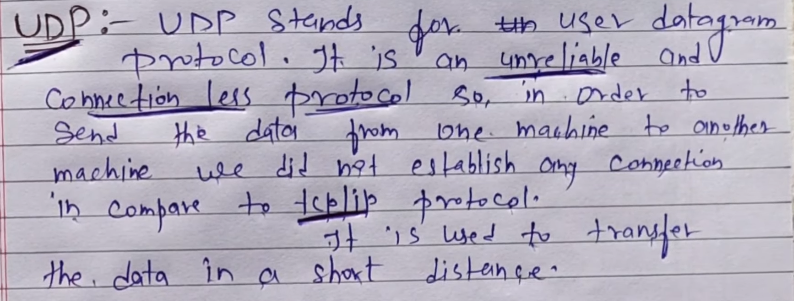 UDP:- UDP stands for user datagram
protocol. It is an unreliable and
Connection less protocol so, in order to
Send the data from one machine to another
machine we did not establish any connection
in compare to tcp/ip protocol.
It is used to transfer
the data in a short distance.